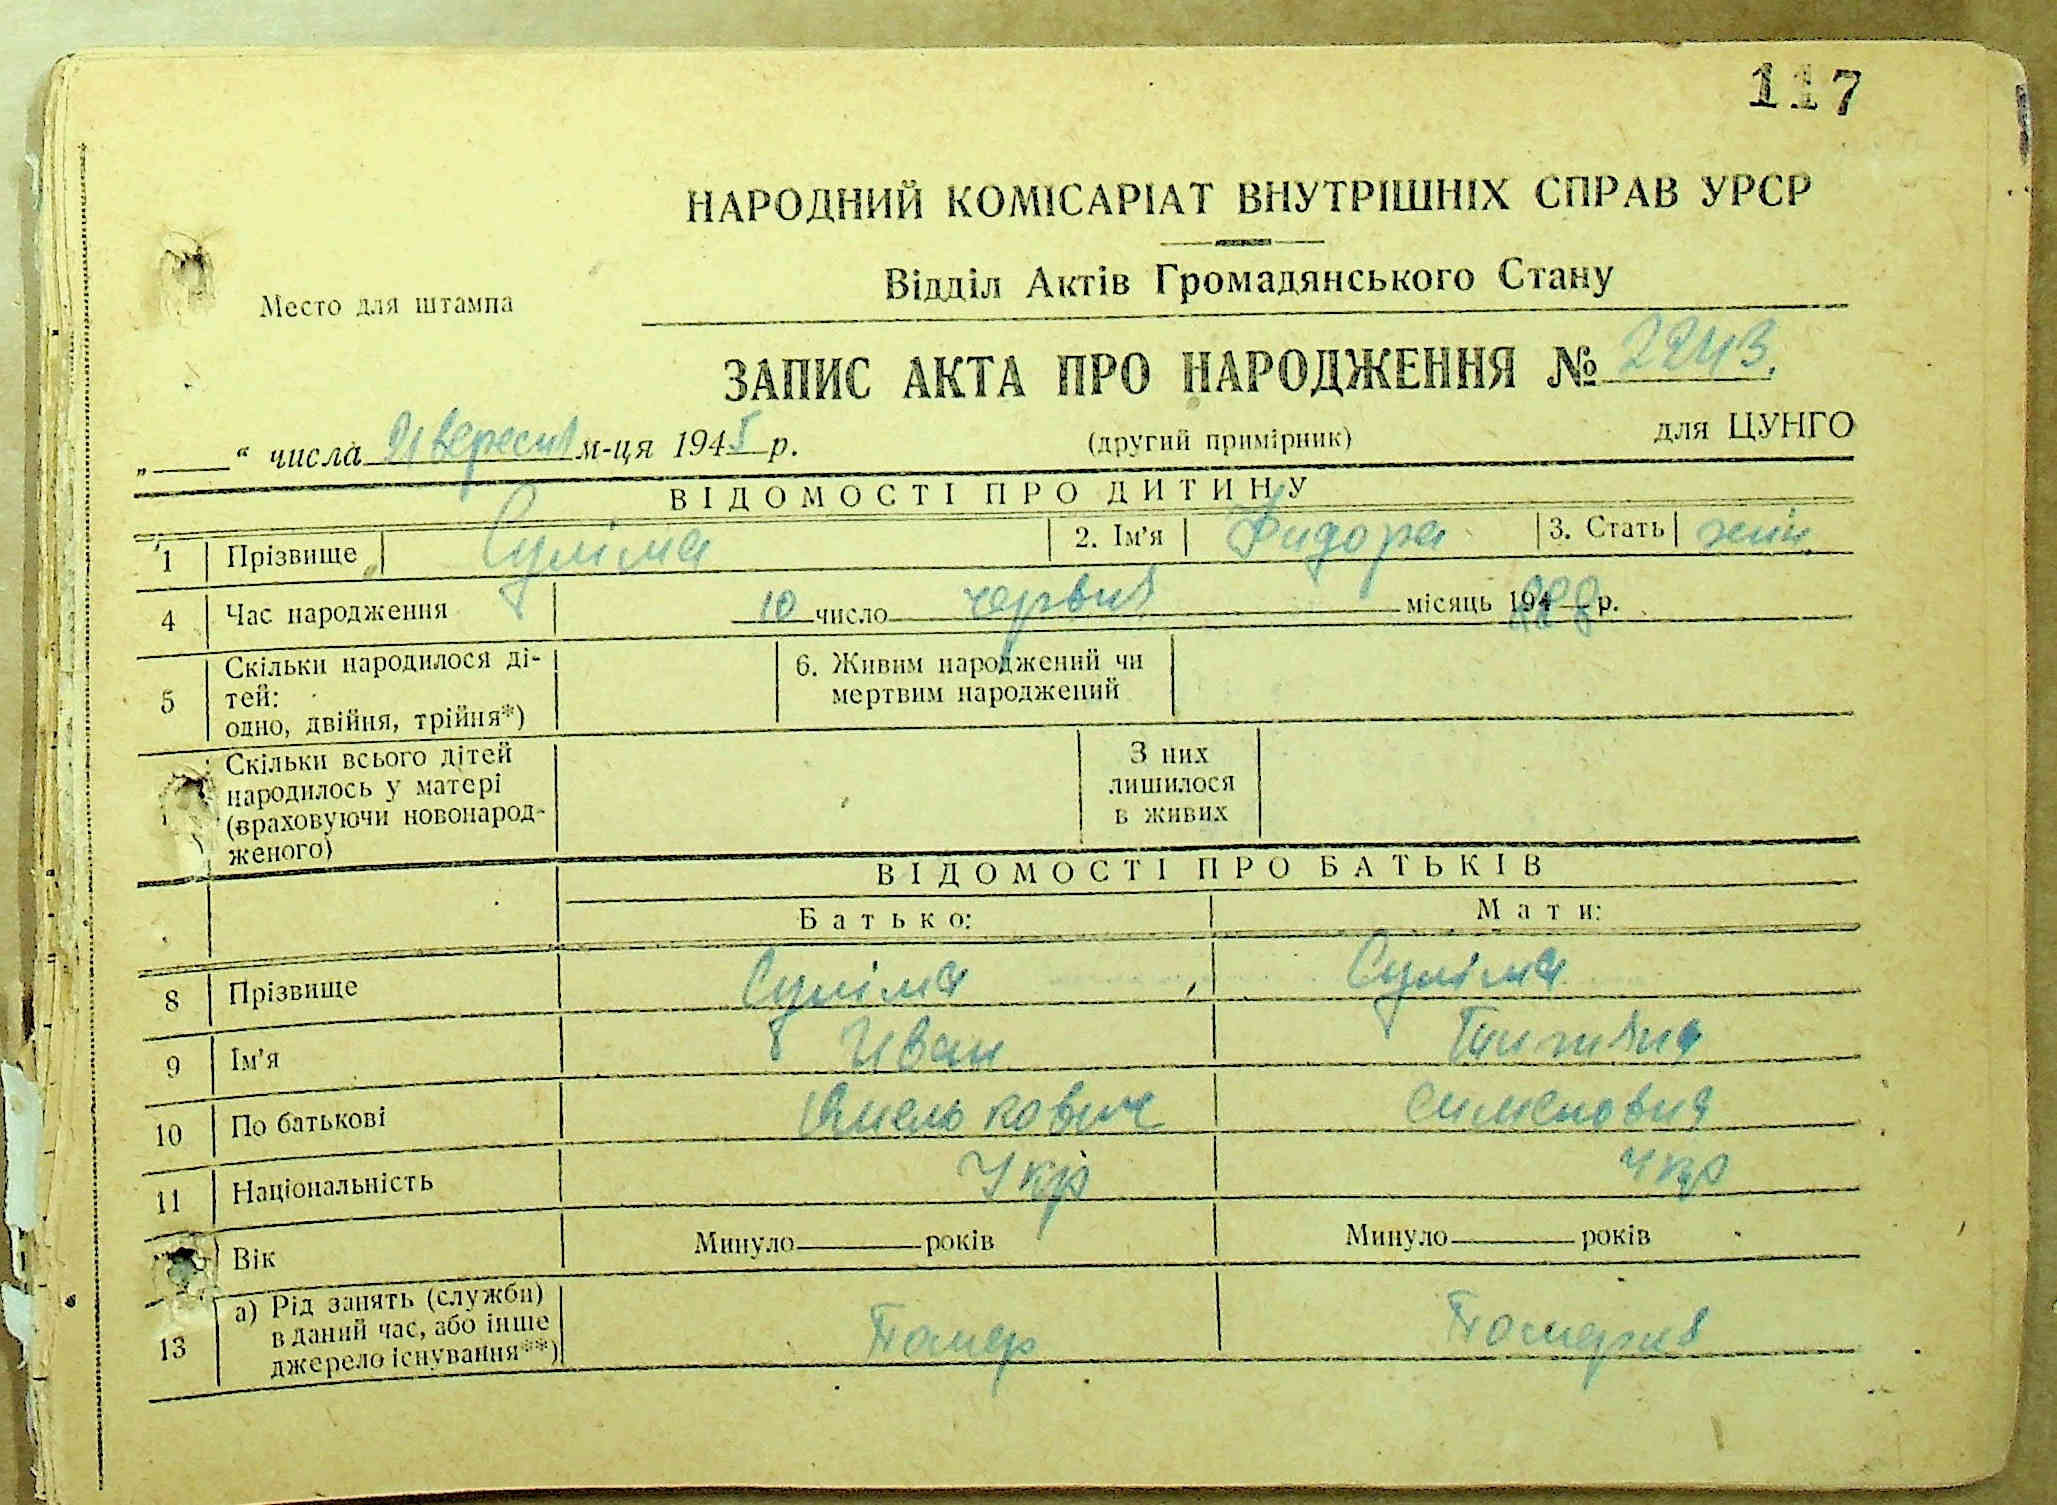 117
НАРОДНИЙ КОМІСАРІАТ ВНУТРІШНІХ СПРАВ УРСР
Відділ Актів Громадянського Стану
Место для штампа
ЗАПИС АКТА ПРО НАРОДЖЕННЯ № 2243.
„ “ числа 21 вересня м-ця 1945 р. (другий примірник) для ЦУНГО
ВІДОМОСТІ ПРО ДИТИНУ
1 Прізвище Суліма 2. Ім'я Хидора 3. Стать жін.
4 Час народження 10 число червня місяць 194 р.
5 Скільки народилося ді-
тей:
одно, двійня, трійня*)
6. Живим народжений чи
мертвим народжений
Скільки всього дітей
народилось у матері
(враховуючи новонарод-
женого)
З них
лишилося
в живих
ВІДОМОСТІ ПРО БАТЬКІВ
Батько: Мати:
8 Прізвище Суліма Суліма
9 Ім'я Иван
10 По батькові Омелькович Сименовня
11 Національність Укр Укр
Вік Минуло років Минуло років
13 а) Рід занять (служби)
в даний час, або інше
джерело існування**)
Помер Померия